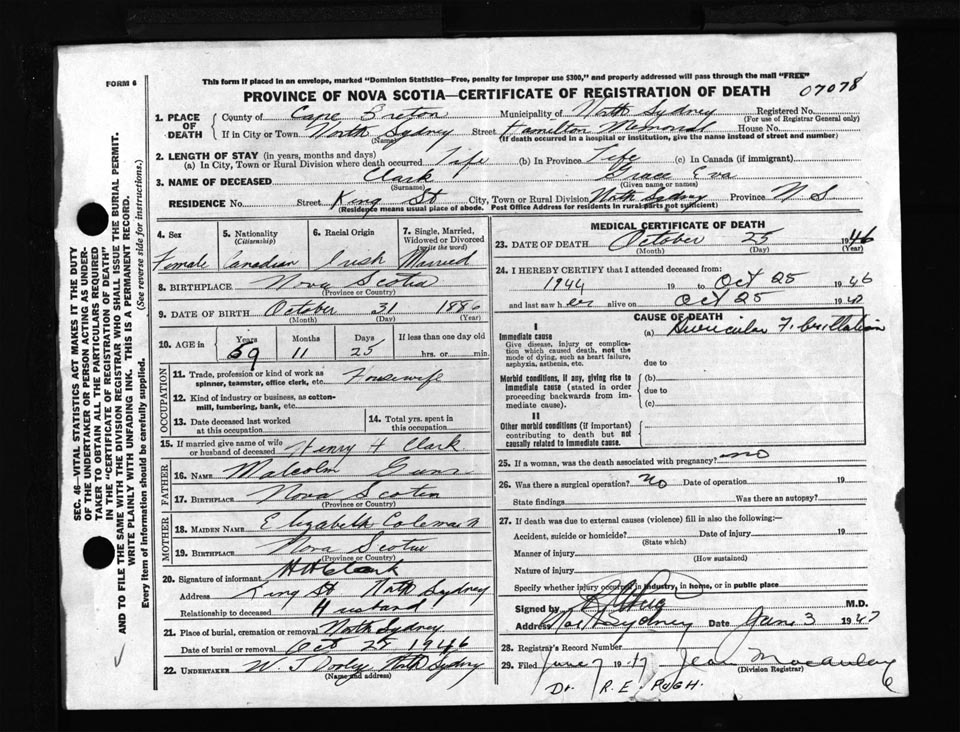 FORM 6
This form if placed in an envelope, marked "Dominion Statistics—Free, penalty for improper use $300," and properly addressed will pass through the mail "FREE"
07078
PROVINCE OF NOVA SCOTIA—CERTIFICATE OF REGISTRATION OF DEATH
1. PLACE OF DEATH
County of Cape Breton Municipality of North Sydney Registered No.
(For use of Registrar General only)
If in City or Town North Sydney Street Hamilton Memorial House No.
(Name) (If death occurred in a hospital or institution, give the name instead of street and number)
2. LENGTH OF STAY (in years, months and days)
(a) In City, Town or Rural Division where death occurred Life (b) In Province Life (c) In Canada (if immigrant)
3. NAME OF DECEASED Clark Grace Eva
(Surname) (Given name or names)
RESIDENCE No. Street King St City, Town or Rural Division North Sydney Province N S
(Residence means usual place of abode. Post Office Address for residents in rural parts not sufficient)
4. Sex 5. Nationality (Citizenship) 6. Racial Origin 7. Single, Married, Widowed or Divorced (write the word)
Female Canadian Irish Married
8. BIRTHPLACE Nova Scotia
(Province or Country)
9. DATE OF BIRTH October 31 1886
(Month) (Day) (Year)
10. AGE in Years Months Days If less than one day old
59 11 25 hrs. or min.
OCCUPATION
11. Trade, profession or kind of work as spinner, teamster, office clerk, etc. Housewife
12. Kind of industry or business, as cotton-mill, lumbering, bank, etc.
13. Date deceased last worked at this occupation
14. Total yrs. spent in this occupation
15. If married give name of wife or husband of deceased Henry H Clark
FATHER
16. NAME Malcolm Gunn
17. BIRTHPLACE Nova Scotia
MOTHER
18. MAIDEN NAME Elizabeth Coleman
19. BIRTHPLACE Nova Scotia
(Province or Country)
20. Signature of informant H H Clark
Address King St North Sydney
Relationship to deceased Husband
21. Place of burial, cremation or removal North Sydney
Date of burial or removal Oct 25 1946
22. UNDERTAKER W J Dooley North Sydney
(Name and address)
MEDICAL CERTIFICATE OF DEATH
23. DATE OF DEATH October 25 1946
(Month) (Day) (Year)
24. I HEREBY CERTIFY that I attended deceased from:
1944 19 to Oct 25 1946
and last saw her alive on Oct 25 19
CAUSE OF DEATH
I
Immediate cause (a) Auricular Fibrillation
Give disease, injury or complication which caused death, not the mode of dying, such as heart failure, asphyxia, asthenia, etc.
due to
Morbid conditions, if any, giving rise to immediate cause (stated in order proceeding backwards from immediate cause).
(b)
due to
(c)
II
Other morbid conditions (if important) contributing to death but not causally related to immediate cause.
25. If a woman, was the death associated with pregnancy? no
26. Was there a surgical operation? no Date of operation 19
State findings Was there an autopsy?
27. If death was due to external causes (violence) fill in also the following:—
Accident, suicide or homicide? Date of injury 19
(State which)
Manner of injury
(How sustained)
Nature of injury
Specify whether injury occurred in industry, in home, or in public place
Signed by M.D.
Address North Sydney Date June 3 1947
28. Registrar's Record Number
29. Filed June 7 1947 Jean Macaulay
(Division Registrar)
Dr. R. E. PUGH.
SEC. 46—VITAL STATISTICS ACT MAKES IT THE DUTY
OF THE UNDERTAKER OR PERSON ACTING AS UNDER-
TAKER TO OBTAIN ALL THE PARTICULARS REQUIRED
IN THE "CERTIFICATE OF REGISTRATION OF DEATH"
AND TO FILE THE SAME WITH THE DIVISION REGISTRAR WHO SHALL ISSUE THE BURIAL PERMIT.
WRITE PLAINLY WITH UNFADING INK. THIS IS A PERMANENT RECORD.
Every item of information should be carefully supplied. (See reverse side for instructions.)